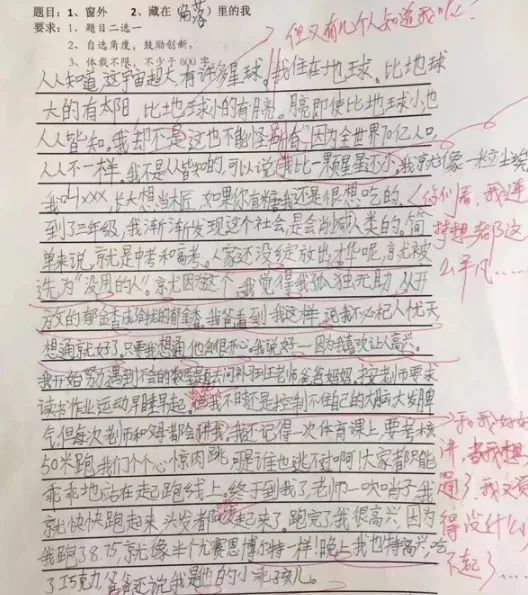 题目：1、窗外 2、藏在（角落）里的我
要求：1、题目二选一
2、自选角度，鼓励创新。
3、体裁不限，不少于600字
但又有几个人知道我呢？
人人知道，这宇宙超大，有许多星球。我住在地球。比地球
大的有太阳，比地球小的有月亮。月亮即使比地球小，也
人人皆知。我却不是，这也不能怪，因为全世界70亿人口，
人人不一样。我不是人人皆知的，可以说我比一颗星星还小，我就像一粒尘埃
我叫xxx，长大想当木匠，如果你有糖我还是很想吃的。（你们看，我连
到了三年级，我渐渐发现这个社会，是会消减人类的。简
梦想都这
单来说，就是中考和高考。人家还没绽放出才华呢，就被
么平凡……
选为“没用的人”。就因为这个，我觉得我孤独无助，从开
放的郁金香成的郁金香。我爸看到我这样，说我不必杞人忧天，
想通就好了。只要我想通，他会很开心。我说好——因为我喜欢让人高兴。
我开始努力，遇到不会的数学题去问补习班老师、爸爸妈妈，按老师要求
读书作业运动早睡早起。但我不时还是控制不住自己的大脑大发脾
气，但每次老师和父母都会讲我，我还记得一次体育课上，要考核
和我好好
50米跑，我们个个心惊肉跳，可是谁也逃不过啊！大家都只能
讲，当我想
乖乖地站在起跑线上。终于到我了，老师一吹哨子，我
通了，我又觉
就快快跑起来，头发都起来了。跑完了我很高兴，因为
得没什么
我跑了8.75，就像半个尤赛恩博尔特一样！晚上我也特高兴，吃
了不起了……
了巧克力，爸爸还说我是他的小乖孩儿。